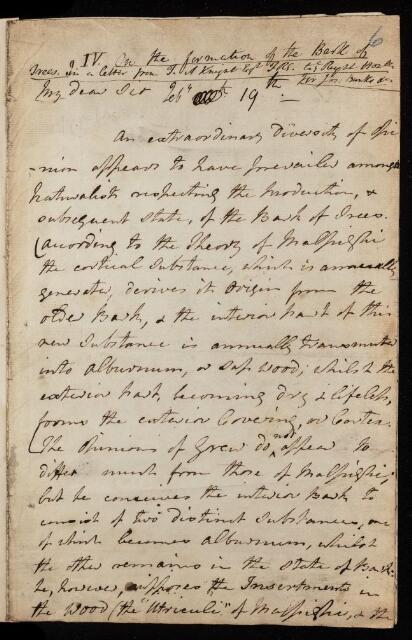 6
IV. On the formation of the Bark of
Trees. In a letter from T. A. Knight Esqr. F.R.S. to the Right Honble
Sir Jos: Banks
My dear Sir Feby 19th
An extraordinary diversity of Opi
-nion appears to have prevailed among
Naturalists respecting the Production, &
subsequent state, of the Bark of Trees.
(According to the Theory of Malpighi
the cortical Substance, which is annually
generated, derives its Origin from the
older Bark, & the interior part of this
new Substance is annually transmuted
into alburnum, or sap wood; whilst the
exterior part, becoming dry & lifeless,
forms the exterior Covering, or Cortex.
(The Opinions of Grew do not appear to
differ much from those of Malpighi;
but he conceives the interior Bark to
consist of two distinct Substances, one
of which becomes alburnum, whilst
the other remains in the state of Bark:
he, however, supposes the Insertments in
the Wood (the "Utriculi" of Malpighi, & the